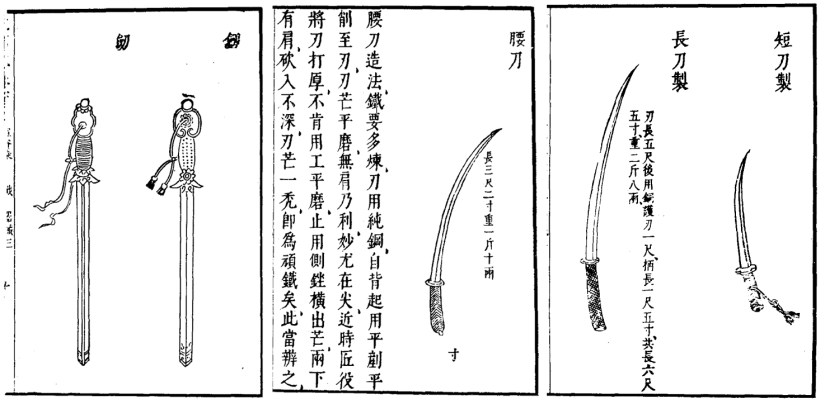 短刀製
長刀製
刃長五尺後用銅護刃一尺柄長一尺五寸共長六尺
五寸重二斤八兩
腰刀
長三尺二寸重一斤十兩
寸
腰刀造法鐵要多煉刃用純鋼自背起用平剷平
削至刃刃芒平磨無肩乃利妙尤在尖近時匠役
將刃打厚不肯用工平磨止用側銼橫出芒兩下
有肩砍入不深刃芒一禿卽為頑鐵矣此當辨之